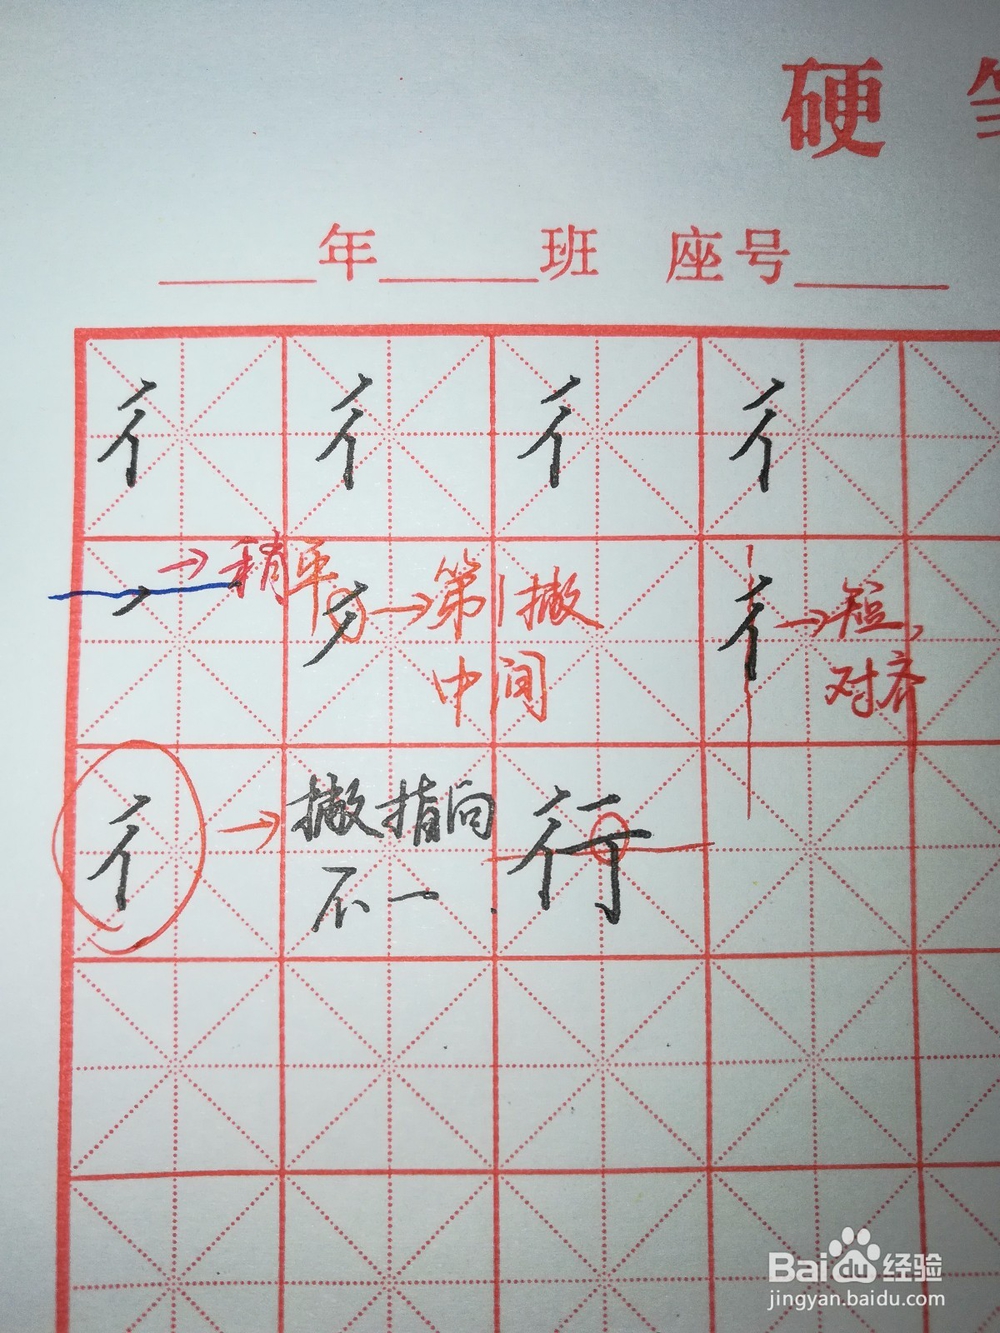 硬
年 班 座号
彳 彳 彳 彳
→稍平
→第1撇
中间
彳→短,
对齐
彳→撇指向
不一
行
Baidu经验
jingyan.baidu.com